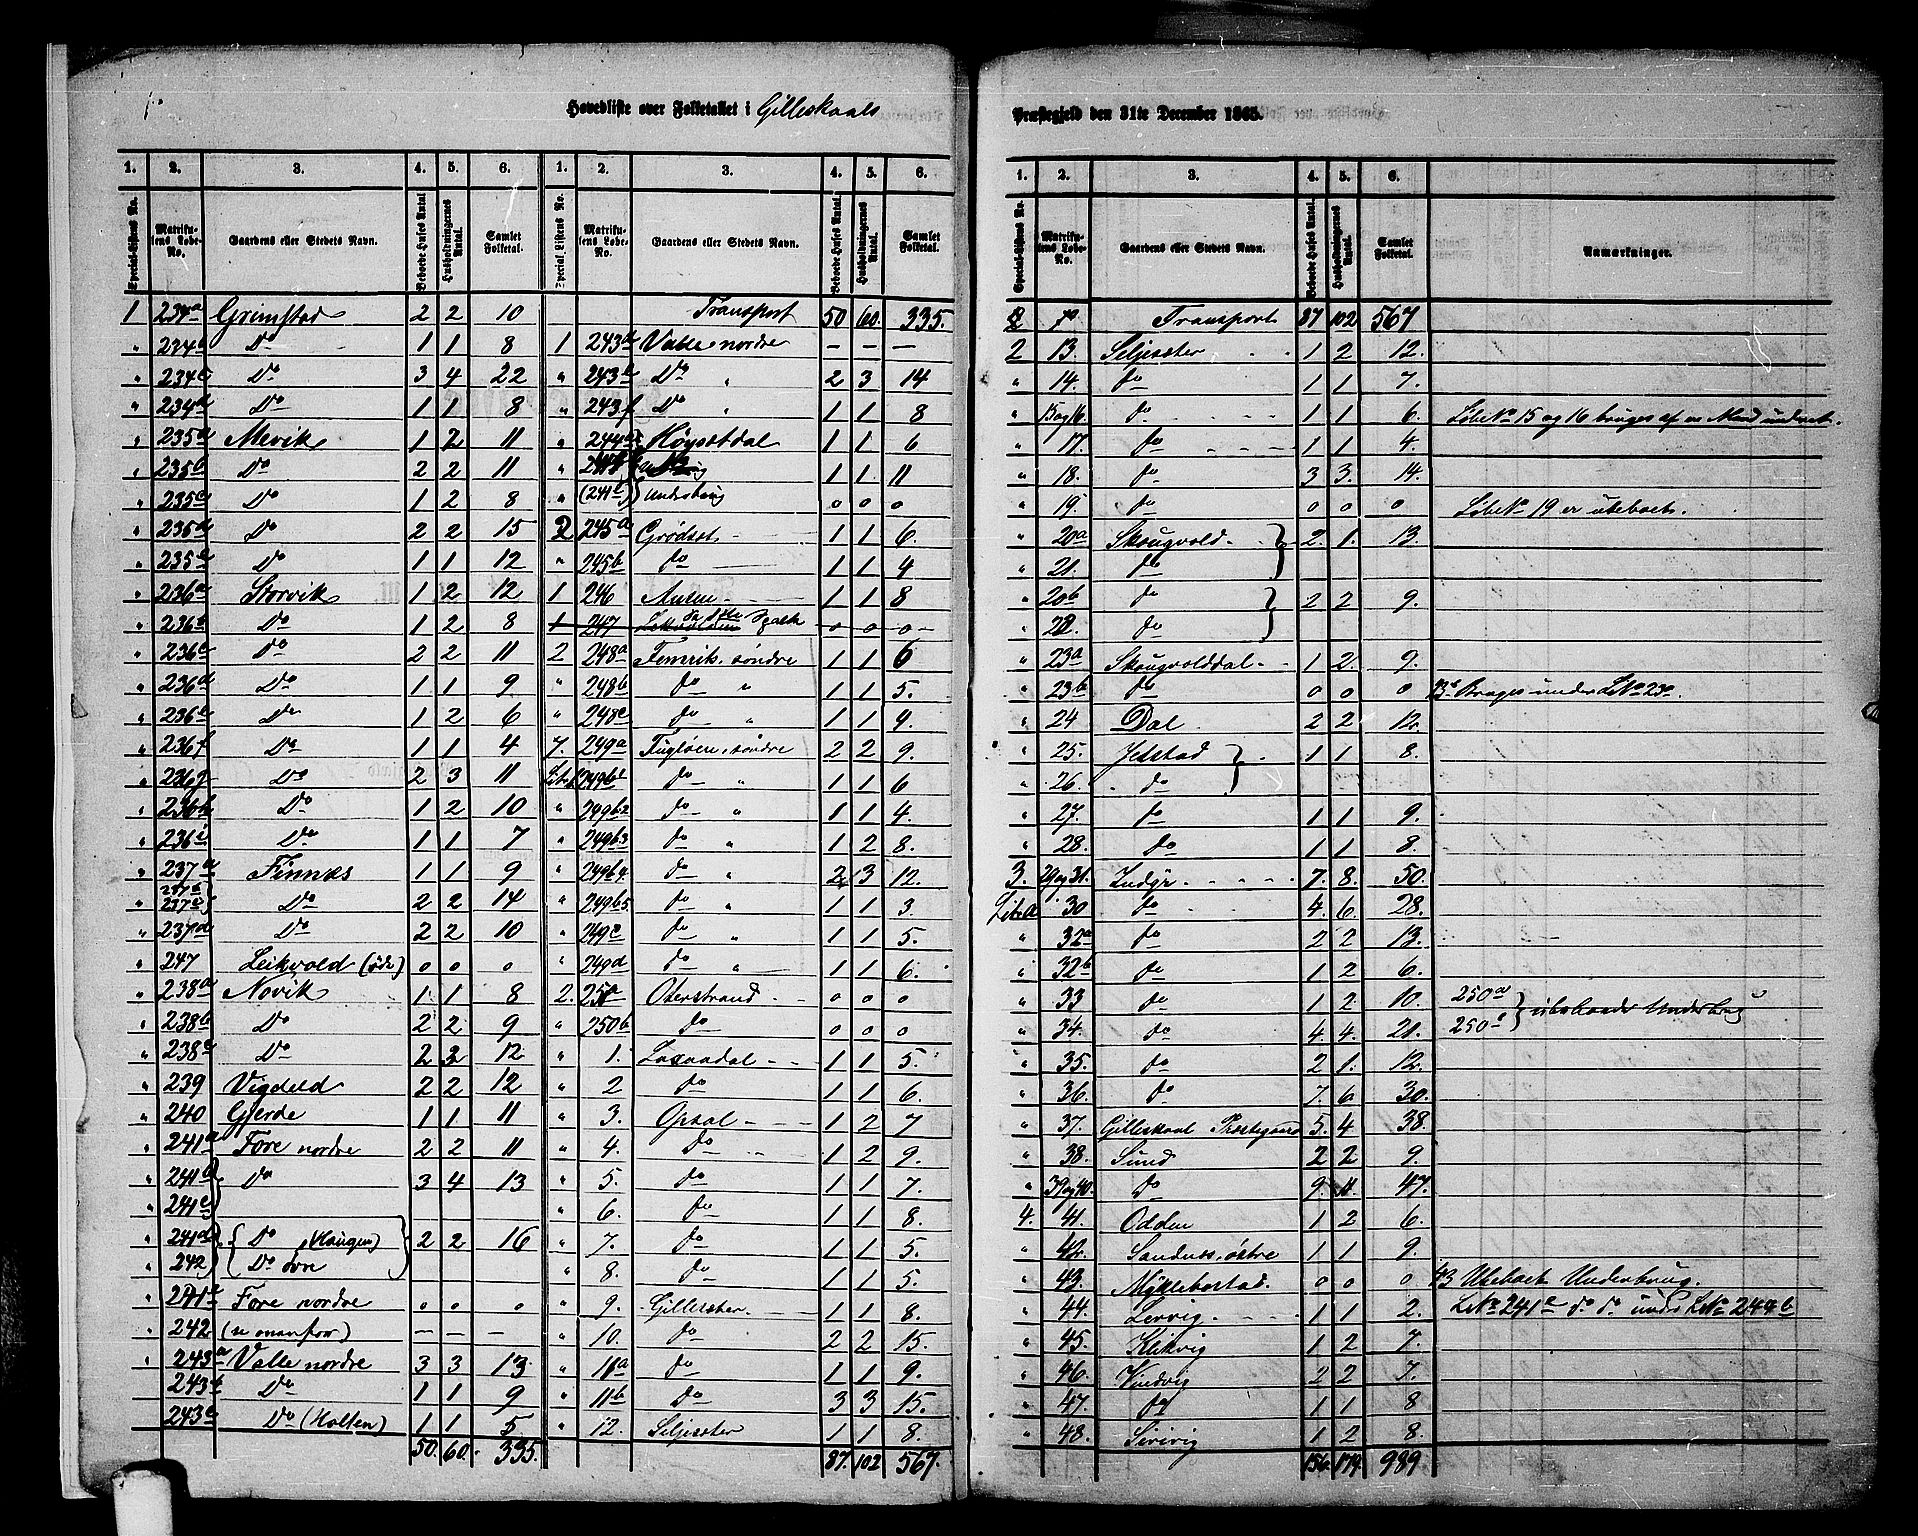 Hovedliste over Folketallet i Gilleskaals
1. 2. 3. 4. 5. 6. 1. 2. 3. 4. 5. 6.
Special-Listens No. Matrikulens Løbe-No. Gaardens eller Stedets Navn. Beboede Huses Antal Husholdningernes Antal. Samlet Folketal. Special Listens No. Matrikulens Løbe-No. Gaardens eller Stedets Navn. Beboede Huses Antal. Husholdningernes Antal. Samlet Folketal.
1 234a Grimstad 2 2 10 Transport 50 60. 335.
" 234b Do 1 1 8 1 243d Valle nordre — — —
" 234c Do 3 4 22 " 243e Do " 2 3 14
" 234d Do 1 1 8 " 243f Do " 1 1 8
" 235a Mevik 1 2 11 " 244a Høgsetdal 1 1 6
" 235b Do 2 2 11 " 1 1 11
" 235c Do 1 2 8 " (241e) Underbrug 0 0 0
" 235d Do 2 2 15 2 245a Grødset 1 1 6.
" 235e Do 1 1 12 " 245b do 1 1 4
" 236a Storvik 1 2 12 1 246 Aasen 1 1 8
" 236b Do 1 2 8 1 247 Leikvolden 0 0 0
" 236c Do 2 2 11 2 248a Femris, søndre 1 1 6
" 236d Do 1 1 9 " 248b do " 1 1 5.
" 236e Do 1 2 6 " 248c do " 1 1 4.
" 236f Do 1 1 4 7. 249a Fugløen, søndre 2 2 9.
" 236g Do 2 3 11 Litr. 249b1 do " 1 1 6
" 236h Do 1 2 10 " 249b2 do " 1 1 4.
" 236i Do 1 1 7 " 249b3 do " 1 2 8.
" 237a Finnæs 1 1 9 " 249b4. do " 2 3 12.
" 237b 237c Do 2 2 14 " 249b5. do " 1 1 3.
" 237d Do 2 2 10 " 249c do " 1 1 5.
" 247 Leikvold (øde) 0 0 0 " 249d do " 1 1 6.
" 238a Novik 1 1 8 2. 250a Oterstrand 0 0 0
" 238b Do 2 2 9 " 250b do 0 0 0
" 238c Do 2 3 12 " 1. Laxaadal 1 1 5.
" 239 Vigdeld 2 2 12 " 2 do 1 1 6.
" 240 Gjerde 1 1 11 " 3. Opsal 1 2 7
" 241a Fore nordre 2 2 11 " 4. Do 1 2 9.
" 241b Do 3 4 13 " 5. do 1 1 7.
241c " 6. do 1 1 8.
" 241d Do (Haugen) 2 2 16 " 7. do 1 1 5.
" 242 Do øvre " 8. do 1 1 5.
" 241e Fore nordre 0 0 0 " 9. Gillesæter 1 1 8.
" 242 (se ovenfor) — — — " 10. do 2 2 15.
" 243a Valle nordre 3 3 13 " 11a do 1 1 9.
" 243b Do 1 1 9 " 11b Do 3 3 15.
243c Do (Holten) 1 1 5 " 12. Seljesæter 1 1 8.
50. 60. 335. 87. 102 567.
Præstegjeld den 31te December 1865.
1. 2. 3. 4. 5. 6.
Special-Listens No. Matrikulens Løbe-No. Gaardens eller Stedets Navn. Beboede Huses Antal. Husholdningernes Antal. Samlet Folketal. Anmærkninger.
Transport 87 102 567
2 13. Seljesæter 1 2 12.
" 14. do 1 1 7.
" 15 og 16. do 1 1 6. Løbe No 15 og 16 bruges af en Mand underet.
" 17. do 1 1 4.
" 18. do 3 3. 14.
" 19. do 0 0 0 Løbe No 19 er ubeboet.
" 20a Skougvold 2. 1. 13.
" 21. do
" 20b do 2 2 9.
" 22. do
" 23a Skougvolddal 1 2. 9.
" 23b do 0 0 0 Bruges under L No 23a.
" 24 Dal 2 2 12.
" 25. Jelstad 1 1 8.
" 26. do
" 27. do 1 1 9.
" 28. do 1 1 8.
3. 29 og 31. Indyr 7. 8. 50.
Litr. a 30 do 4. 6. 28.
" 32a do 2 2 13.
" 32b do 1 2 6.
" 33 do 1 2 10. 250a
" 34. do 4. 4. 21. 250b ubeboede Underbrug
" 35. do 2 1. 12.
" 36. do 7. 6 30.
" 37. Gilleskaal Præstegaard 5. 4 38.
" 38. Sund 2 2 9.
" 39 og 40. do 9. 11. 47.
4. 41. Odden 1 2 6.
" 42. Sandnes, østre 1 1 9.
" 43. Myklebostad. 0 0 0 43 Ubeboet Underbrug.
" 44. Lervig 1 1 2. L No 241e do do under L No 244b
" 45. Klikvig 1 2 7.
" 46. Vindvig 2 2 7.
" 47. do 1 1 8
" 48. Sirivig 1 2 8.
156. 179. 989